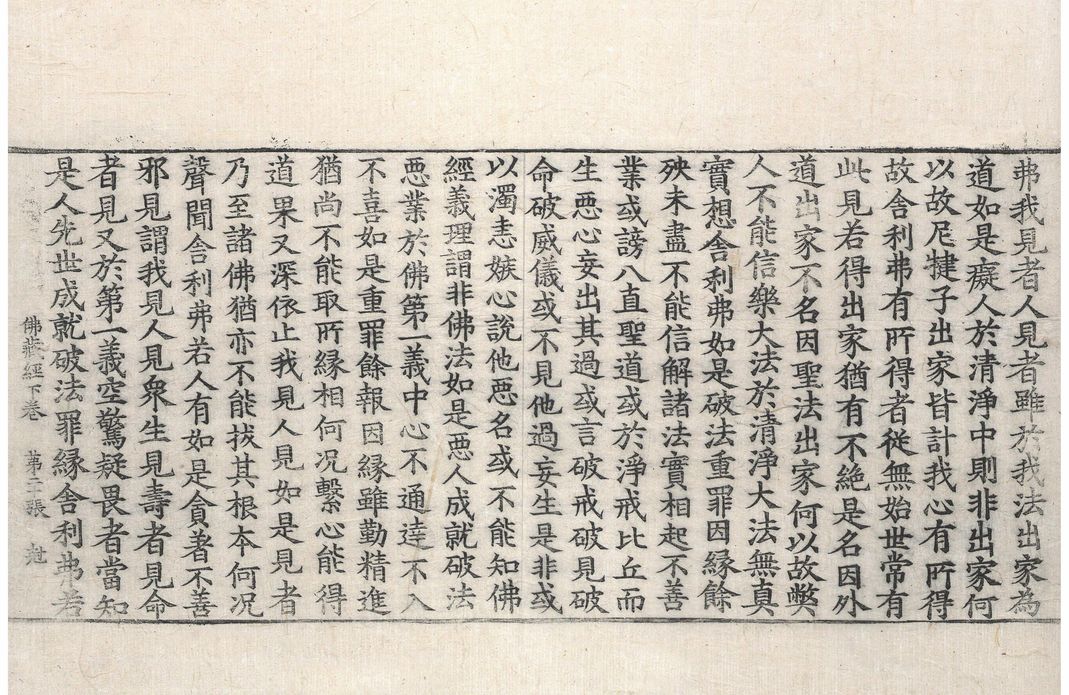 弗我見者人見者雖於我法出家為
道如是癡人於清淨中則非出家何
以故尼揵子出家皆計我心有所得
故舍利弗有所得者從無始世常有
此見若得出家猶有不絕是名因外
道出家不名因聖法出家何以故弊
人不能信樂大法於清淨大法無真
實想舍利弗如是破法重罪因緣餘
殃未盡不能信解諸法實相起不善
業或謗八直聖道或於淨戒比丘而
生惡心妄出其過或言破戒破見破
命破威儀或不見他過妄生是非或
以濁恚嫉心說他惡名或不能知佛
經義理謂非佛法如是惡人成就破法
惡業於佛第一義中心不通達不入
不喜如是重罪餘報因緣雖勤精進
猶尚不能取所緣相何況繫心能得
道果又深依止我見人見如是見者
乃至諸佛猶亦不能拔其根本何況
聲聞舍利弗若人有如是貪著不善
邪見謂我見人見衆生見壽者見命
者見又於第一義空驚疑畏者當知
是人先世成就破法罪緣舍利弗若
佛藏經下卷 第二張